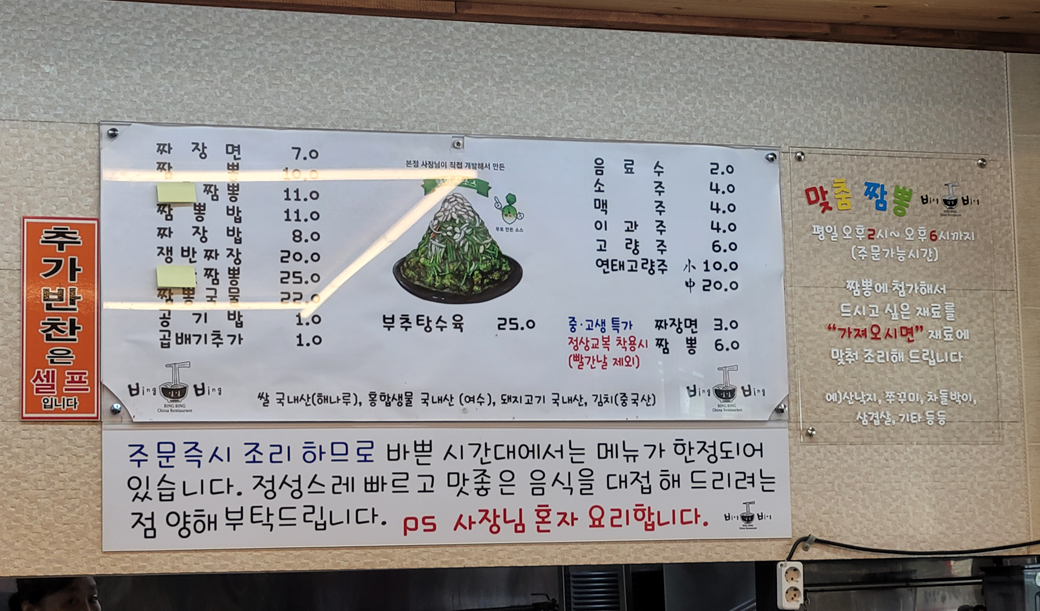 추가반찬은
셀프
입니다
짜장면 7.0
짬뽕 10.0
짬뽕 11.0
짬뽕밥 11.0
짜장밥 8.0
쟁반짜장 20.0
짬뽕 25.0
짬뽕국물 22.0
공기밥 1.0
곱배기추가 1.0
본점 사장님이 직접 개발해서 만든
부추탕수육 25.0
음료수 2.0
소주 4.0
맥주 4.0
이과주 4.0
고량주 6.0
연태고량주 小 10.0
中 20.0
중·고생 특가 짜장면 3.0
정상교복 착용시 짬뽕 6.0
(빨간날 제외)
Bing Bing
BING BING
China Restaurant
쌀 국내산(해나루), 홍합생물 국내산 (여수), 돼지고기 국내산, 김치(중국산)
Bing Bing
BING BING
China Restaurant
주문즉시 조리 하므로 바쁜 시간대에서는 메뉴가 한정되어
있습니다. 정성스레 빠르고 맛좋은 음식을 대접해 드리려는
점 양해부탁드립니다. ps 사장님 혼자 요리합니다.
Bing Bing
맞춤 짬뽕 Bing Bing
평일 오후2시~ 오후6시까지
(주문가능시간)
짬뽕에 첨가해서
드시고 싶은 재료를
"가져오시면" 재료에
맞춰 조리해 드립니다
예)산낙지, 쭈꾸미, 차돌박이,
삼겹살, 기타 등등